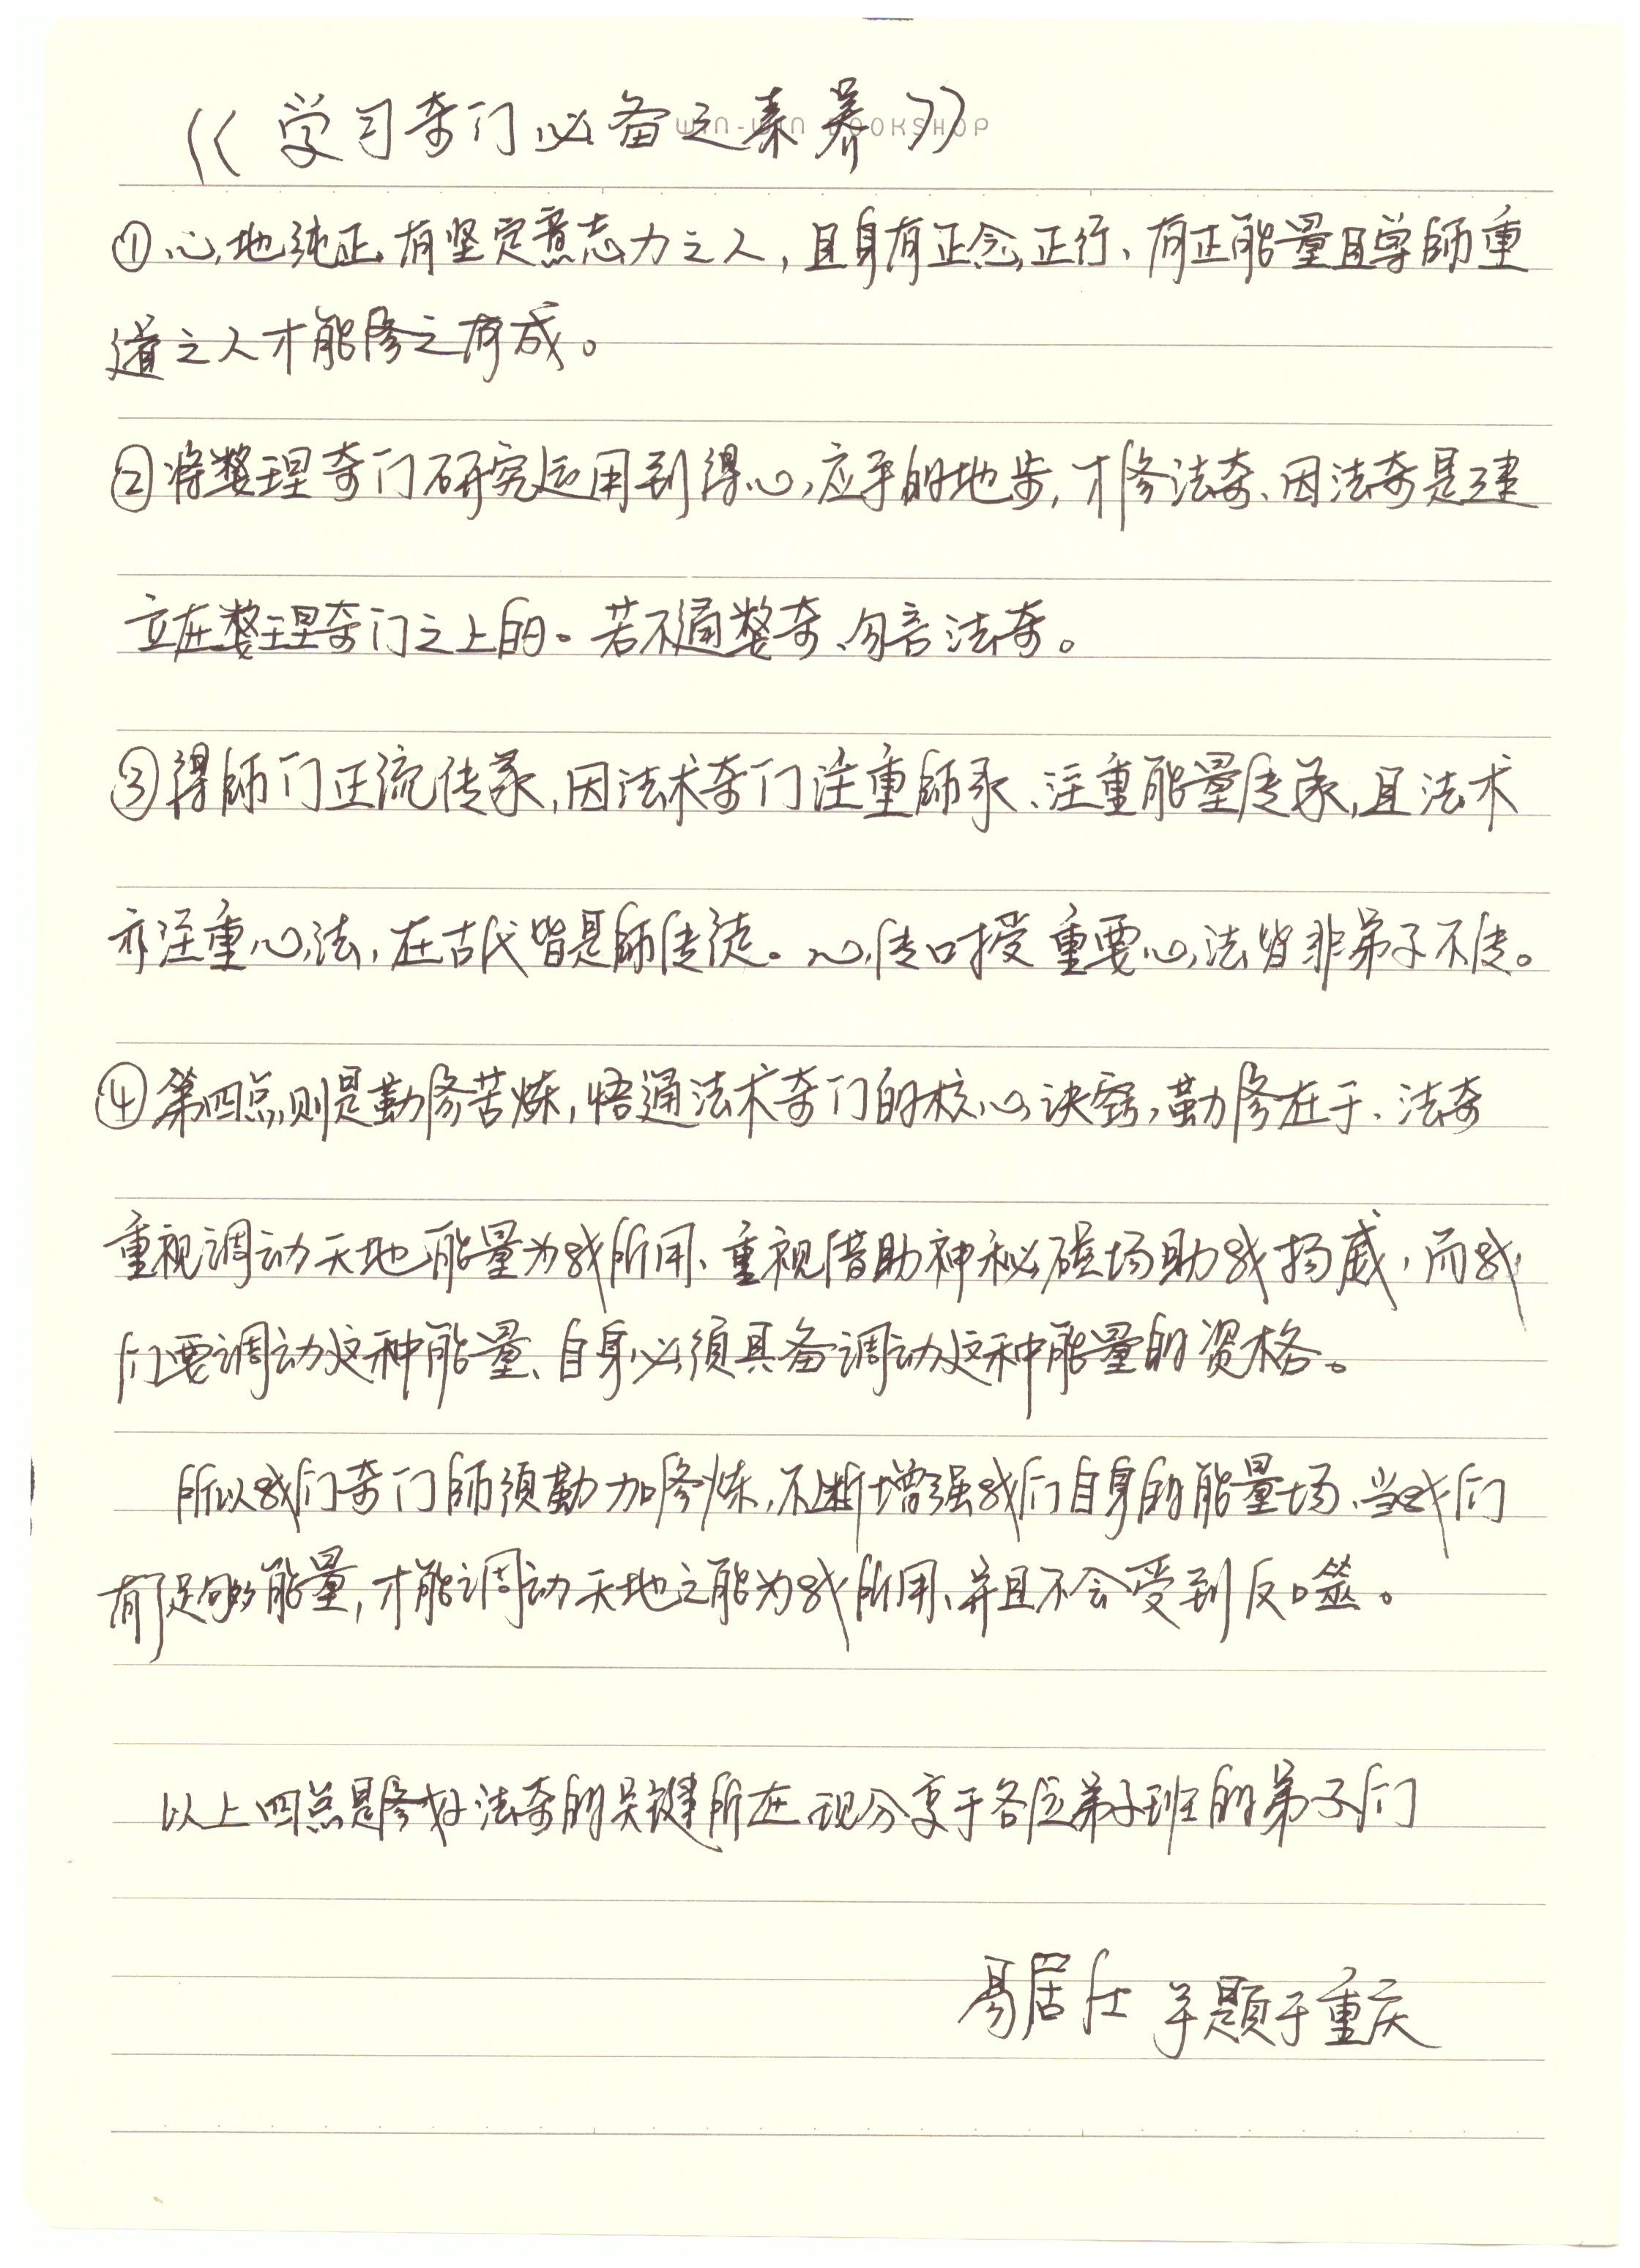 《学习奇门必备之素养》
WIN-WIN BOOKSHOP
①心地纯正、有坚定意志力之人，且身有正念正行、有正能量且尊師重
道之人才能修之有成。
②将数理奇门研究运用到得心应手的地步，才修法奇、因法奇是建
立在数理奇门之上的。若不通数奇、勿言法奇。
③得師门正流传承，因法术奇门注重師承、注重能量传承，且法术
亦注重心法，在古代皆是師传徒。心传口授重要心法皆非弟子不传。
④第四点则是勤修苦炼，悟通法术奇门的核心诀窍，勤修在于、法奇
重视调动天地能量为我所用、重视借助神秘磁场助我扬威，而我
们要调动这种能量、自身必须具备调动这种能量的资格。
所以我们奇门師须勤加修炼，不断增强我们自身的能量场、当我们
有了足够能量，才能调动天地之能为我所用、并且不会受到反噬。
以上四点是修好法奇的关键所在现分享于各位弟子班的弟子们
易居仕 手题于重庆